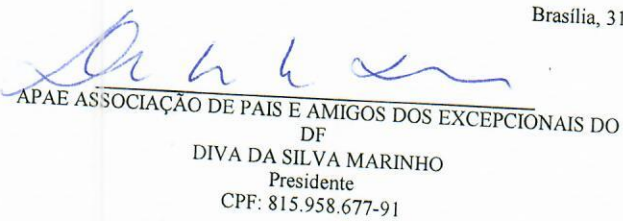 Brasília, 31
APAE ASSOCIAÇÃO DE PAIS E AMIGOS DOS EXCEPCIONAIS DO
DF
DIVA DA SILVA MARINHO
Presidente
CPF: 815.958.677-91